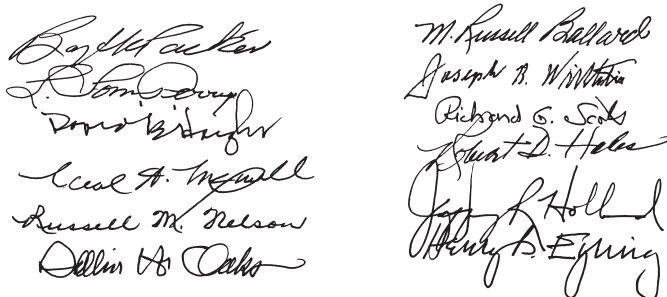 Boyd K Packer
L. Tom Perry
David B. Haight
Neal A. Maxwell
Russell M. Nelson
Dallin H. Oaks
M. Russell Ballard
Joseph B. Wirthlin
Richard G. Scott
Robert D. Hales
Jeffrey R Holland
Henry B. Eyring